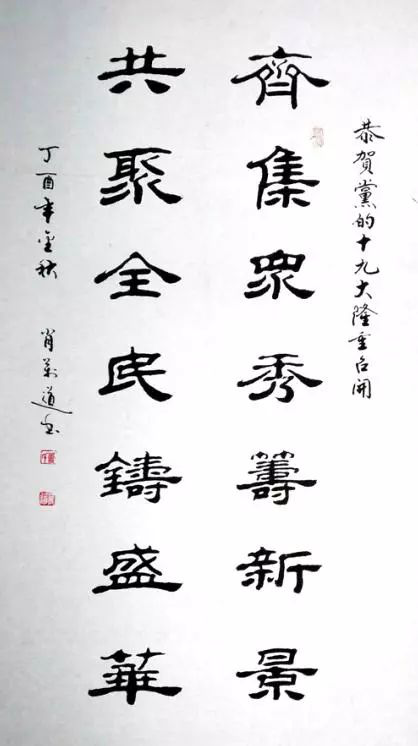 恭賀黨的十九大隆重召開
齊集衆秀籌新景
共聚全民鑄盛華
丁酉年金秋 肖萬道書